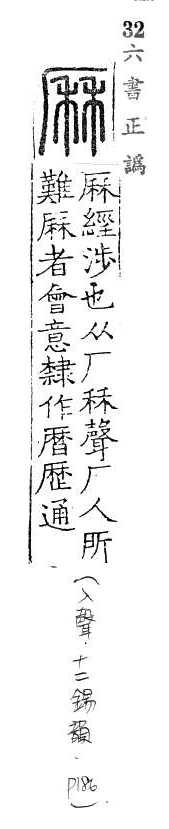 32六書正譌
厤
厤經涉也从厂秝聲厂人所
難厤者會意隸作曆歷通
(入聲．十二錫韻．
P186)